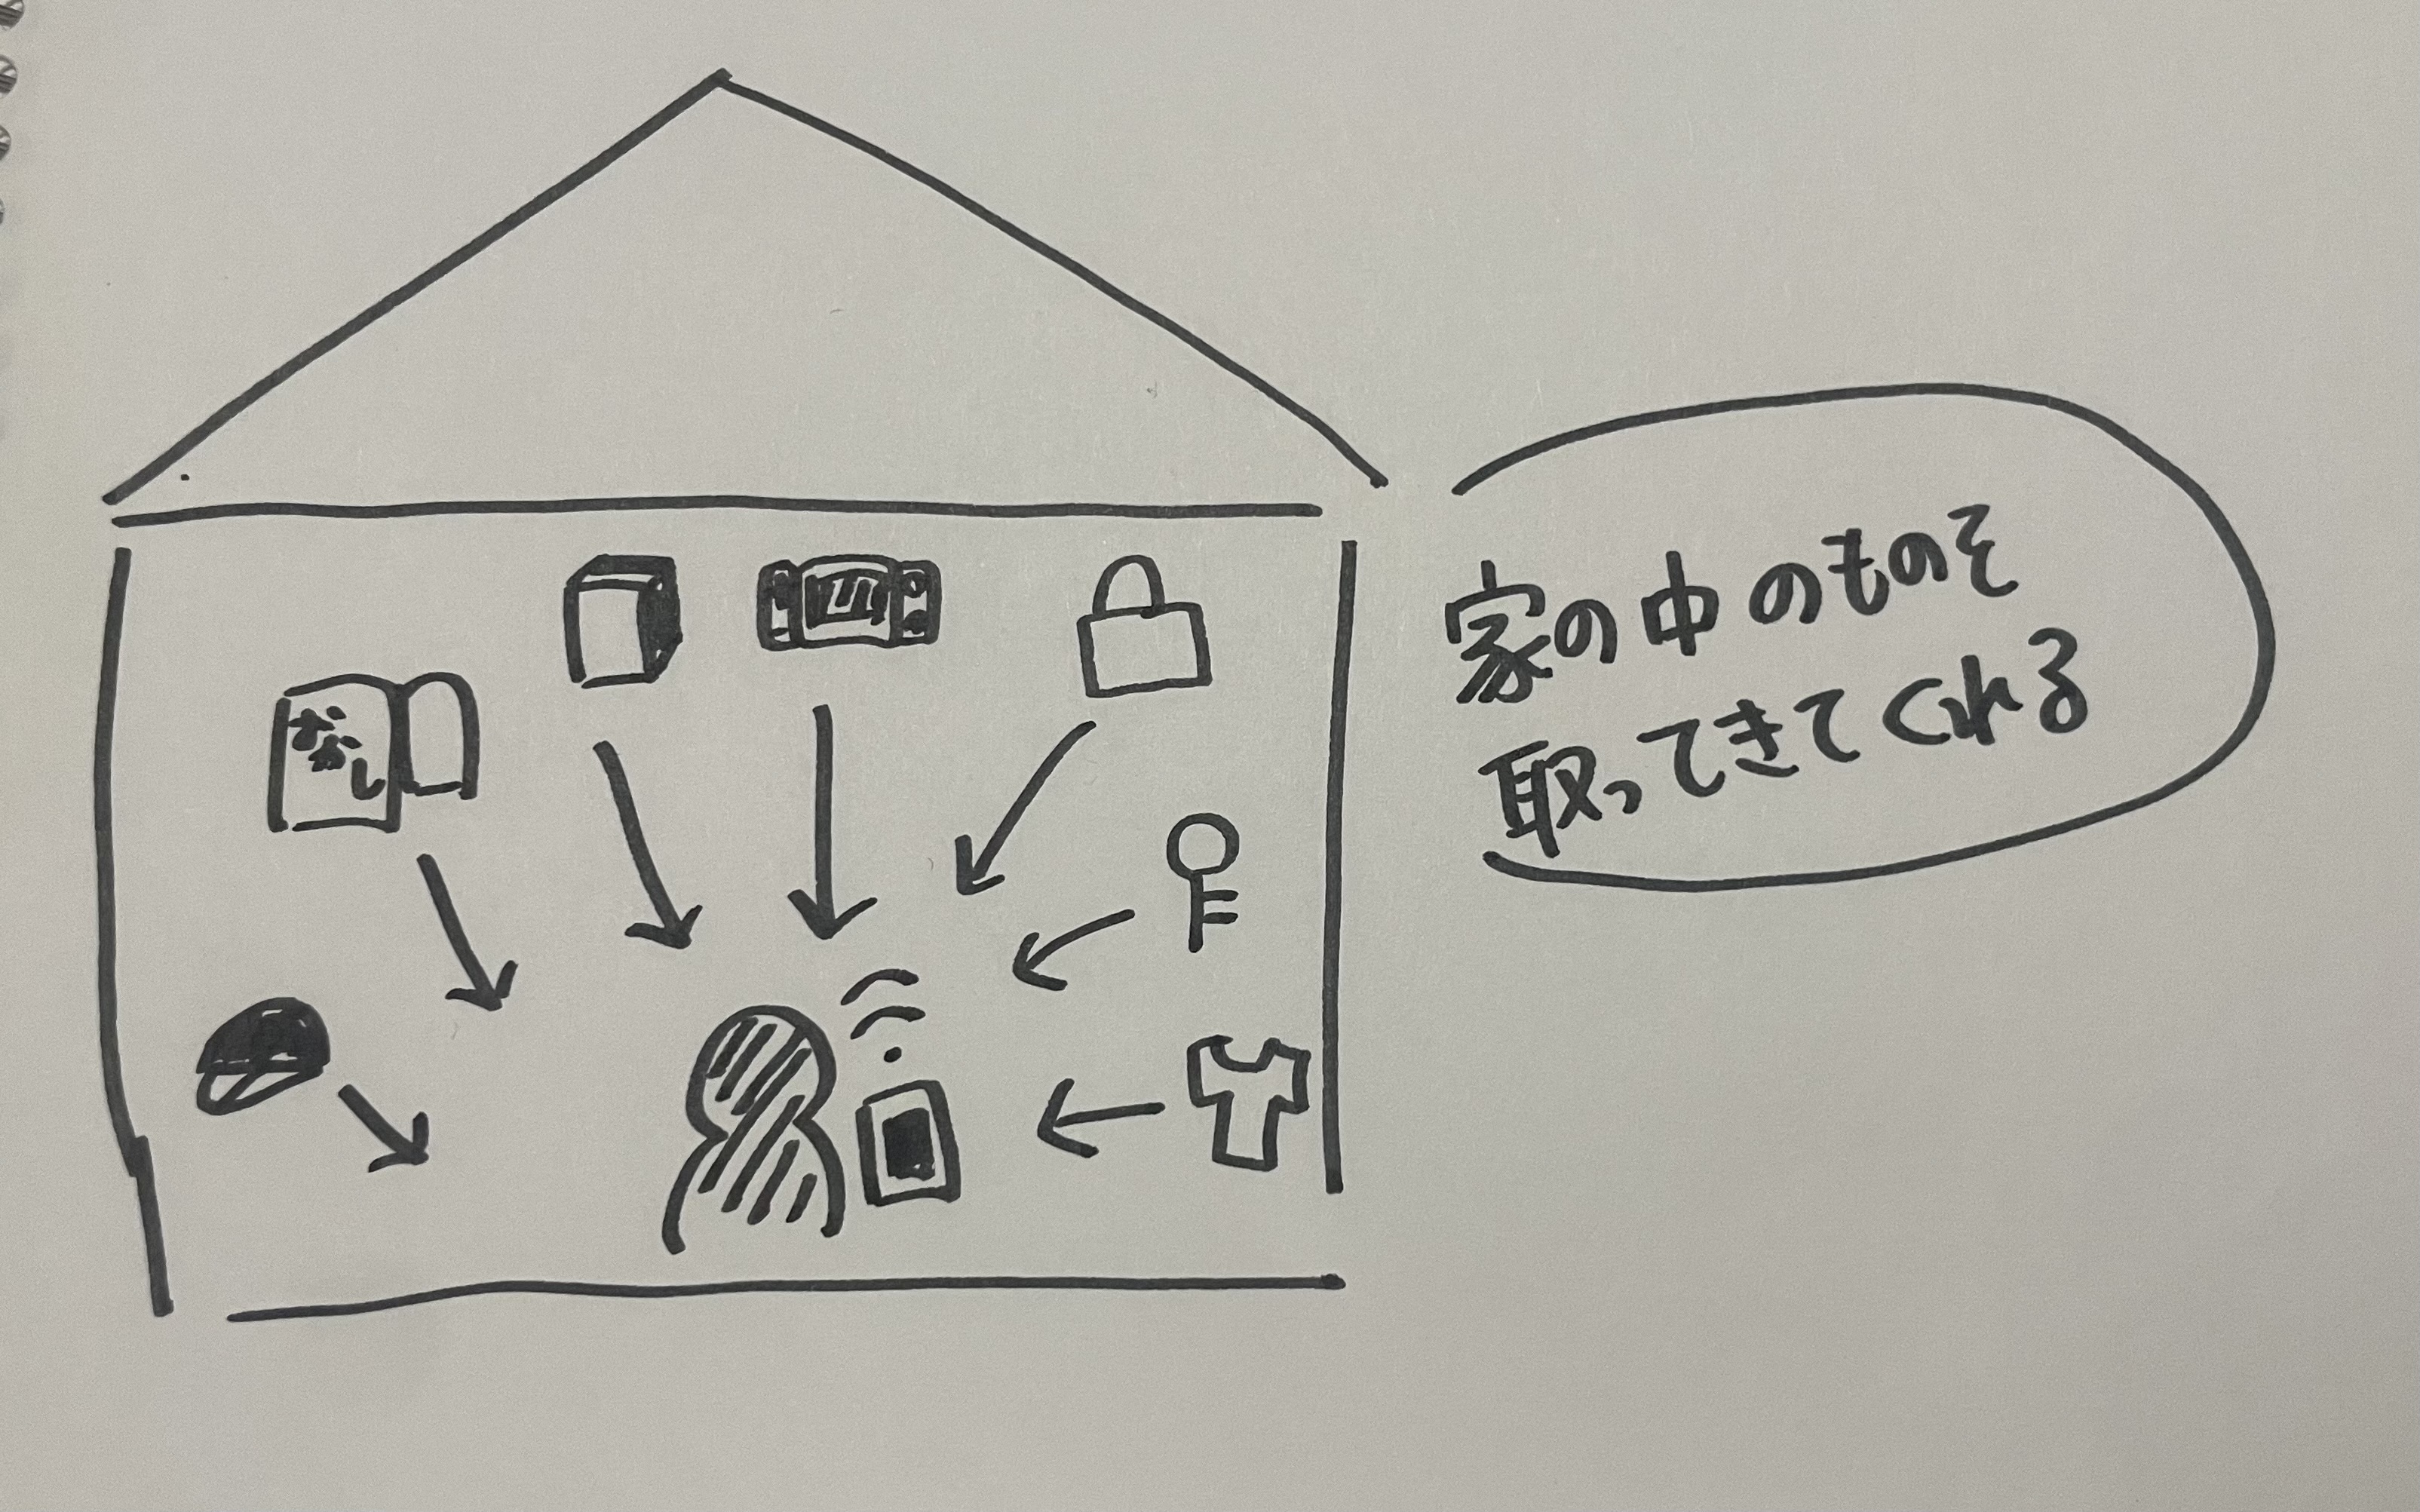 おかし
家の中のものを
取ってきてくれる